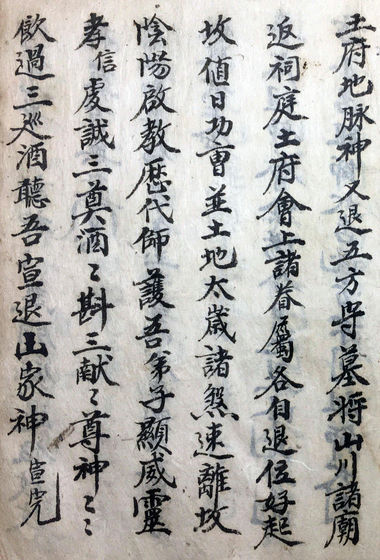 土府地脉神又退五方守墓将山川諸廟
返祠庭土府會上諸眷属各自退位好起
坟值日功曹並土地太歲諸煞速離坟
陰陽啟教歴代師護吾弟子顯威靈
孝信虔誠三奠酒〻斟三献〻尊神〻〻
飲過三廵酒聽吾宣退山家神 宣完